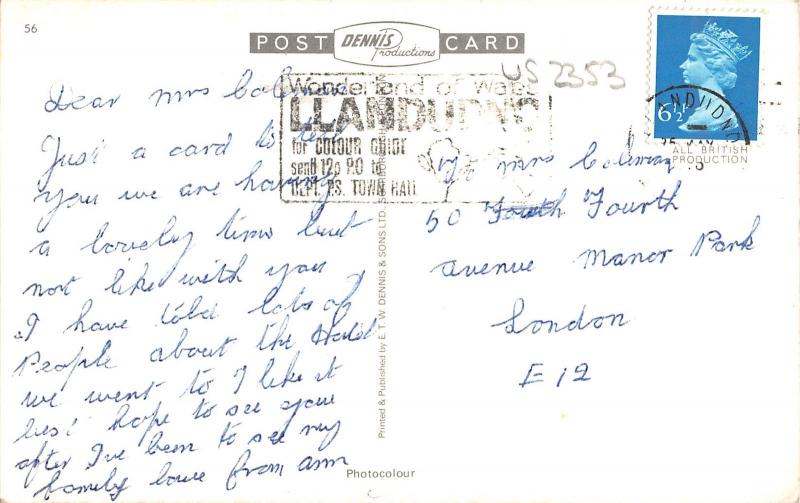 56
POST DENNIS Productions CARD
US 2353
Wonderland of Wales
LLANDUDNO
for COLOUR GUIDE
send 12p P.O to
DEPT. P.S. TOWN HALL
6½P
ALL BRITISH
PRODUCTION
Dear Mrs Coleman
Just a card to tell
you we are having
a lovely time but
not like with you
I have told lots of
People about the
we went to I like it
best hope to see you
after I've been to see my
family love from ann
Printed & Published by E.T.W. DENNIS & SONS LTD. SCARBOROUGH
Mrs Coleman
50 Fourth
avenue Manor Park
London
E 12
Photocolour